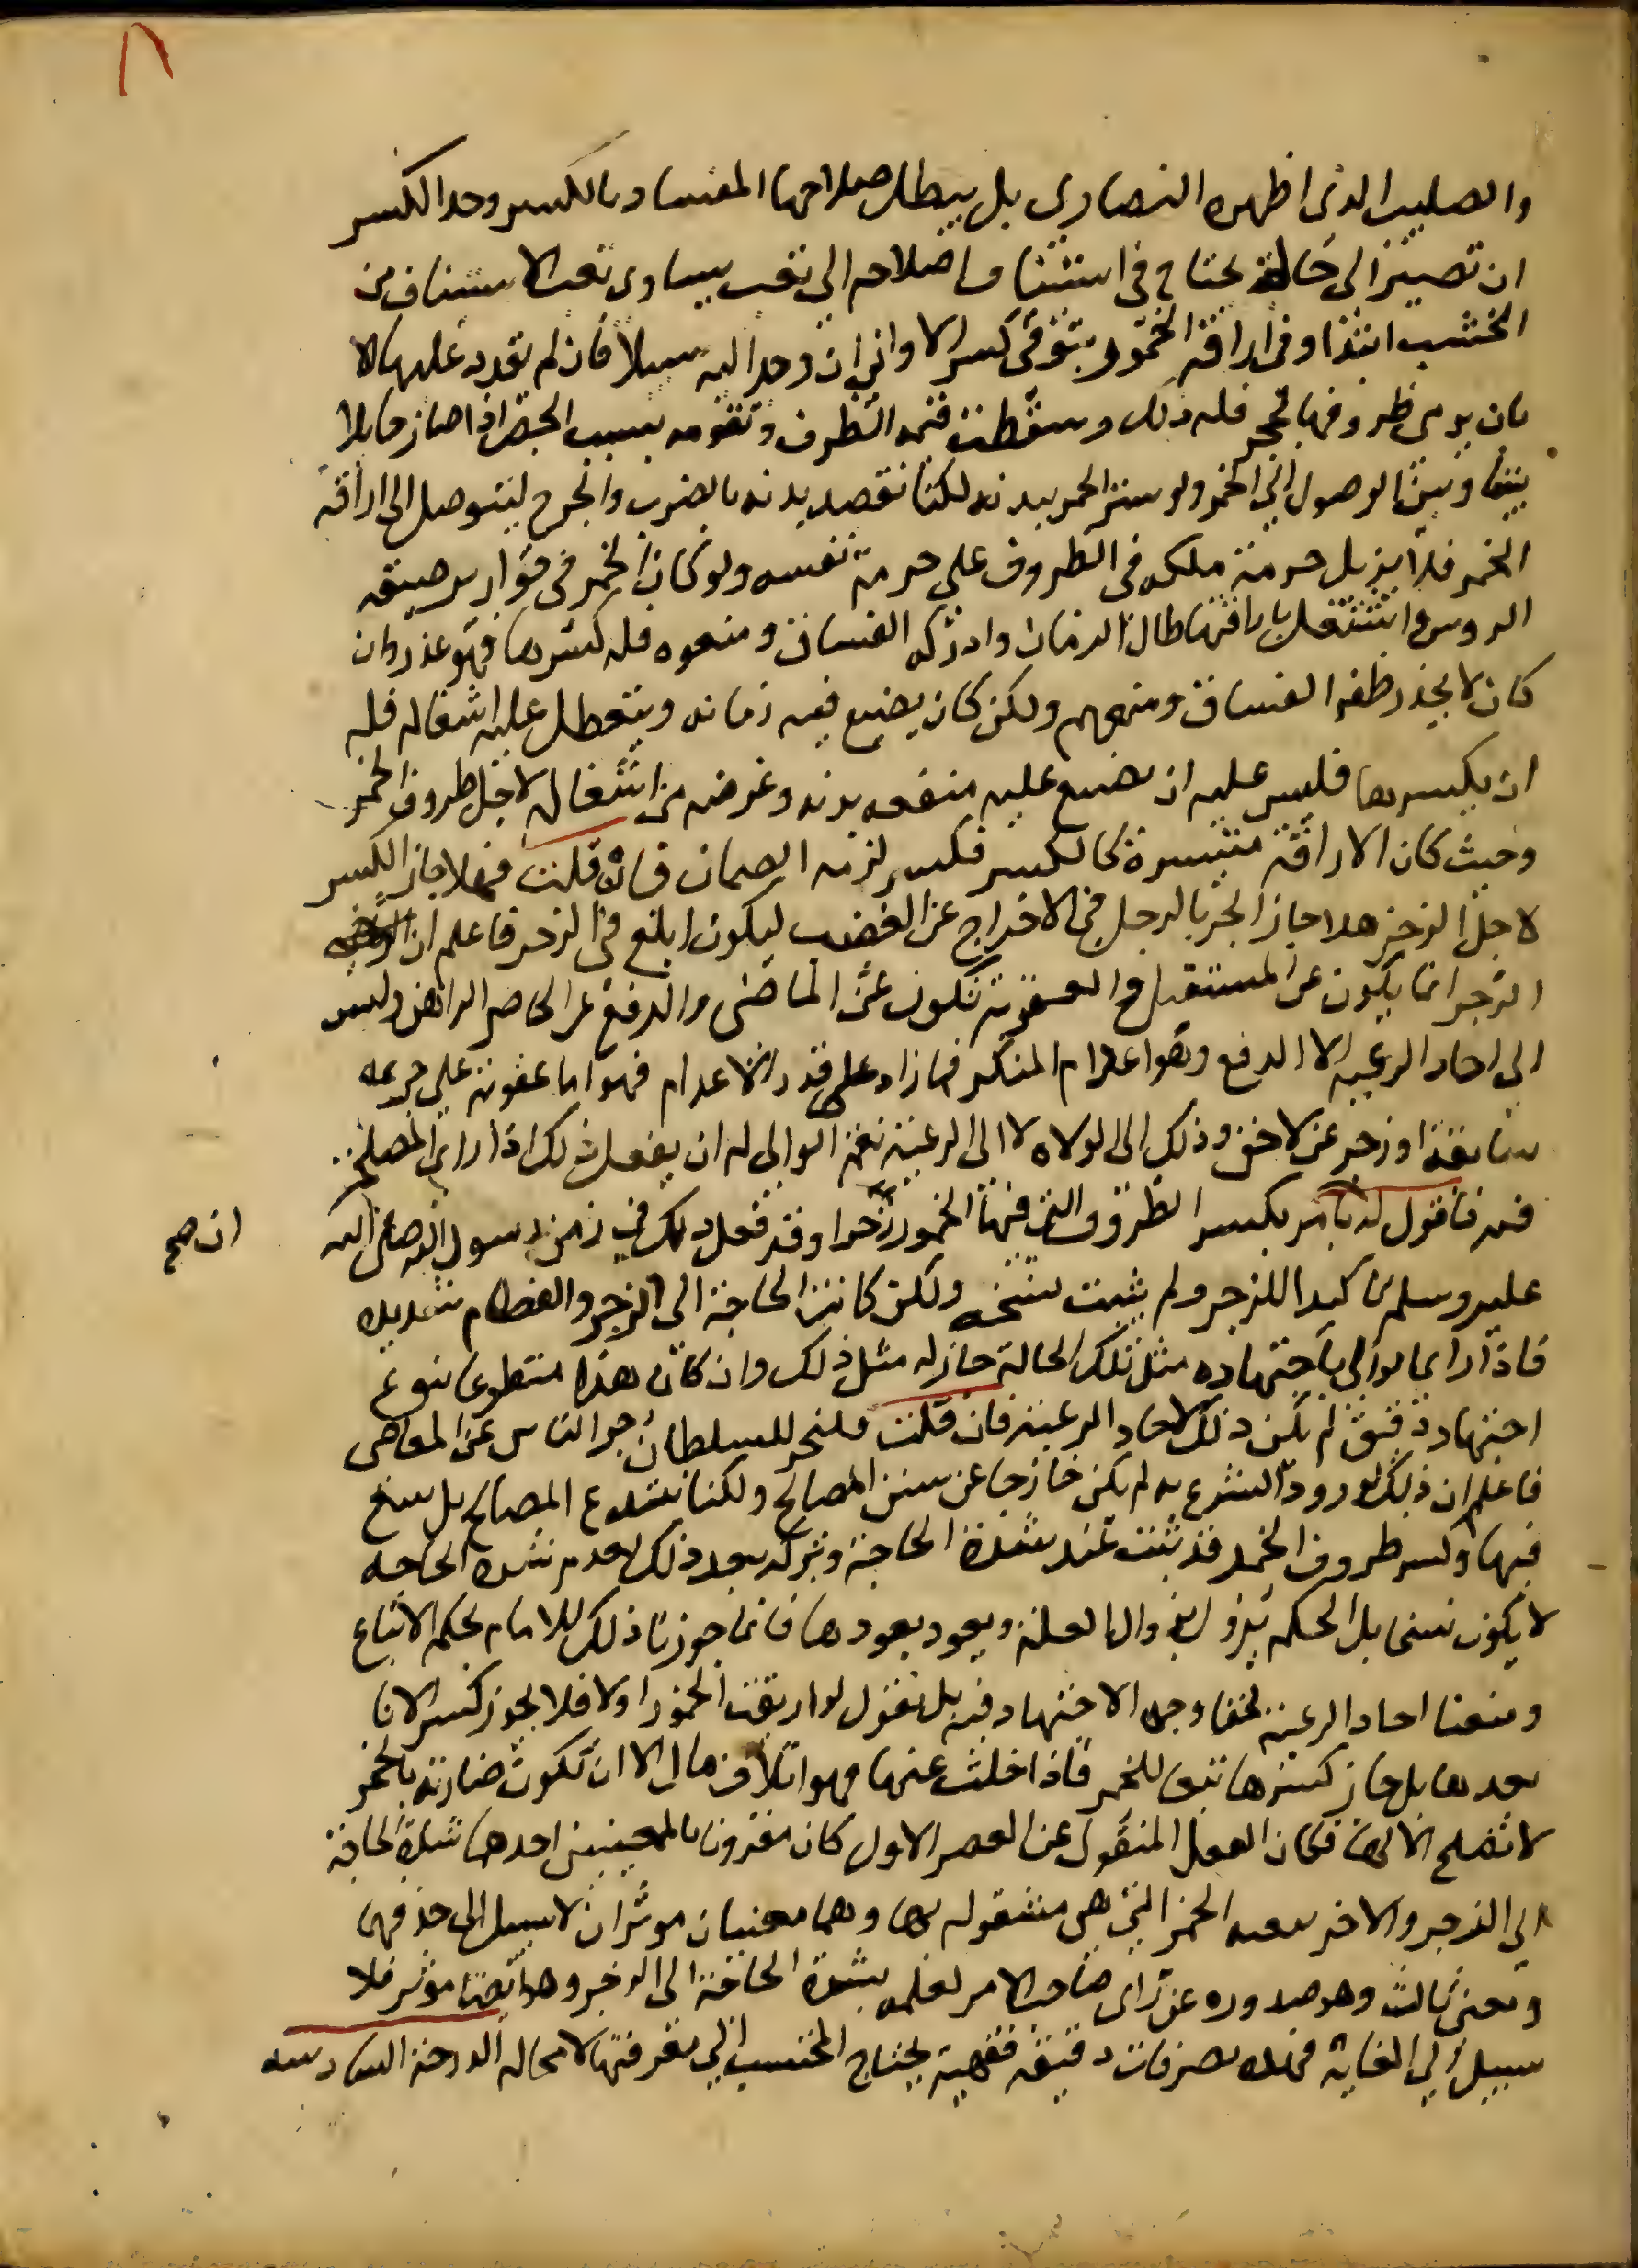 ٨
والصليب الذي اظهره النصارى بل يبطل صلاحها للفساد بالكسر وحد الكسر
ان تصير الى حالة تحتاج في استئناف اصلاحه الى تعب يساوي تعب الاستئناف من
الخشب ابتدا وفي اراقة الخمور يتوقى كسر الاواني ان وجد اليه سبيلا فان لم يقدر عليها الا
بان يرمى ظروفها بحجر فله ذلك وسقطت قيمة الظرف وتقومه بسبب الخمر اذا صار حايلا
بيننا وبين الوصول الى الخمر ولو ستر الخمر ببدنه لكنا نقصد بدنه بالضرب والجرح ليتوصل الى اراقة
الخمر فلا يزيل حرمة ملكه في الظروف على حرمة نفسه ولو كان الخمر في قوارير ضيقة
الروس واشتغل باراقتها طال الزمان وادركه الفساق ومنعوه فله كسرها فهو عذر وان
كان لا يحذر ظفر الفساق ومنعهم ولكن كان يضيع فيه زمانه ويتعطل عليه اشغاله فله
ان يكسرها فليس عليه ان يضيع عليه منفعة بدنه وغرضه من اشغاله لاجل ظروف الخمر
وحيث كان الاراقة متيسرة كالكسر فكسر لزمه الضمان فان قلت فهلا جاز الكسر
لاجل الزجر هلا جاز الجر بالرجل في الاخراج عن الغضب ليكون ابلغ في الزجر فاعلم ان
الزجر انما يكون عن المستقبل والعقوبة تكون على الماضي والدفع على الحاضر الراهن وليس
الى احاد الرعية الا الدفع وهو اعدام المنكر فما زاد على قدر الاعدام فهو اما عقوبة على جريمة
سابقة او زجر عن لاحق وذلك الى الولاه لا الى الرعية نعم الوالي له ان يفعل ذلك اذا راى المصلحة
فيه فاقول له يامر بكسر الظروف التي فيها الخمور زجرا وقد فعل ذلك في زمن رسول الله صلى الله
ان صح
عليه وسلم تاكيدا للزجر ولم يثبت نسخه ولكن كانت الحاجة الى الزجر والفطام شديدة
فاذا راى الوالي باجتهاده مثل تلك الحالة جاز له مثل ذلك وان كان هذا منطويا بنوع
اجتهاد دقيق لم يكن ذلك لاحاد الرعية فان قلت فليجز للسلطان زجر الناس عن المعاصي
فاعلم ان ذلك لو ورد الشرع به لم يكن خارجا عن سنن المصالح ولكنا لا نبتدع المصالح بل نتبع
فيها وكسر ظروف الخمر قد ثبت عند شدة الحاجة وتركه بعد ذلك لعدم شدة الحاجة
لا يكون نسخا بل الحكم يزول بزوال العلة ويعود بعودها فانما جوزنا ذلك للامام بحكم الاتباع
ومنعنا احاد الرعية لخفا وجه الاجتهاد فيه بل نقول لو اريقت الخمور اولا فلا يجوز كسر الانا
بعدها بل جاز كسرها تبعا للخمر فاذا خلت عنها فهو اتلاف مال الا ان تكون ضارية بالخمر
لا تصلح الا لها فكان الفعل المنقول عن العصر الاول كان مقرونا بالمعنيين احدهما شدة الحاجة
الى الزجر والاخر تبعية الخمر التي هي مشغولة بها وهما معنيان موثران لا سبيل الى حذفهما
ومعنى ثالث وهو صدوره عن راى صاحب الامر لعلمه بشدة الحاجة الى الزجر وهو ايضا موثر فلا
سبيل الى الغاية فهذه تصرفات دقيقة فقهية يحتاج المحتسب الى معرفتها لا محاله الدرجة السادسه